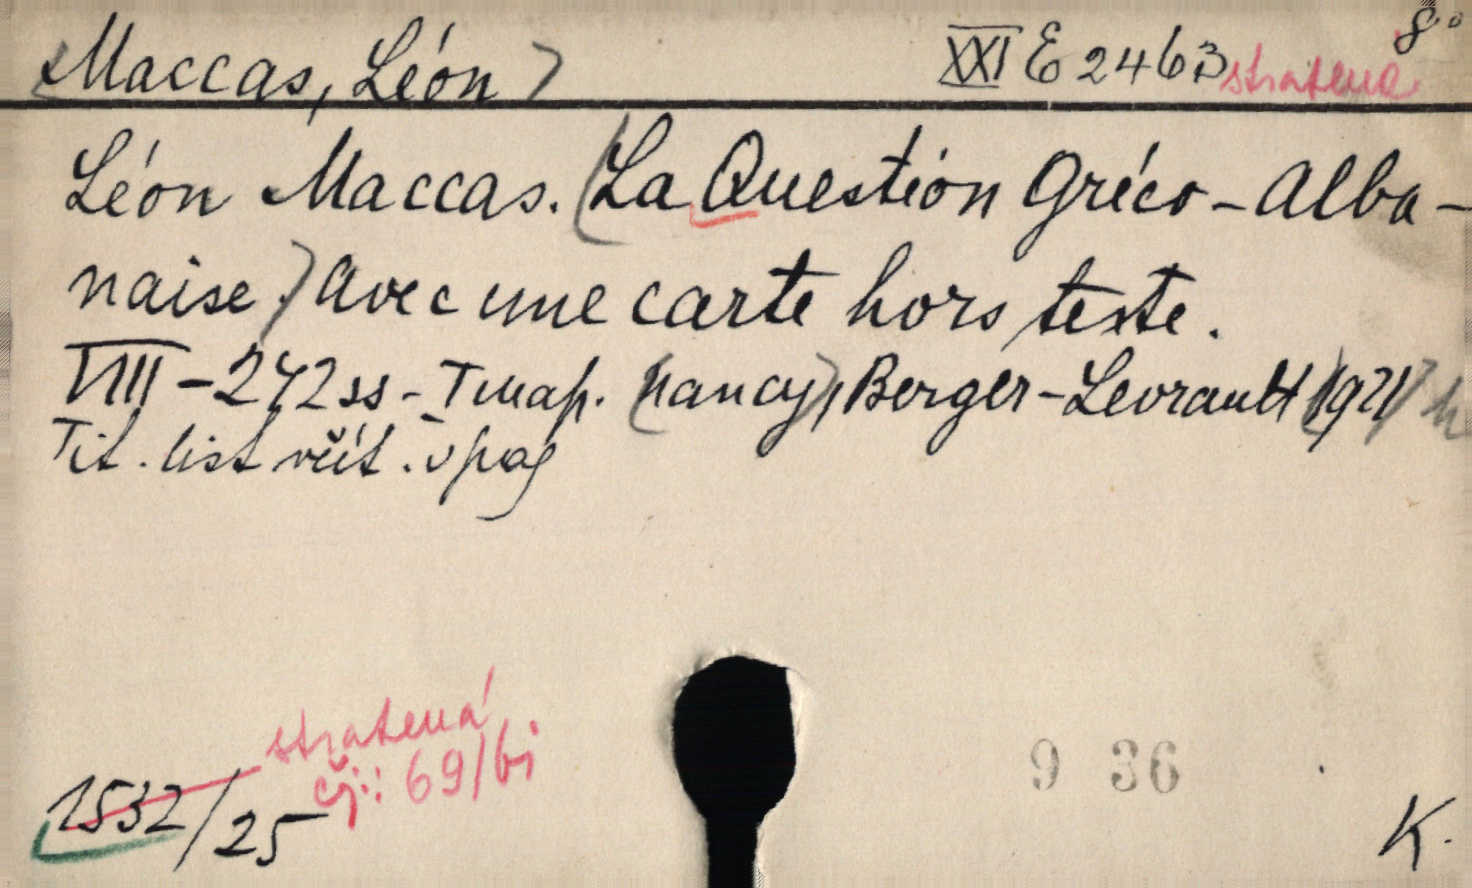 Maccas, Léon
XXI E 2463
8°
stratená
Léon Maccas. (La Question Gréco-Alba-
naise.) Avec une carte hors texte.
VIII - 272 ss - I map. (Nancy), Berger-Levrault (1921)
Tit. list včít. v pag
stratená
čj.: 69/bi
1532/25
9 36
K.